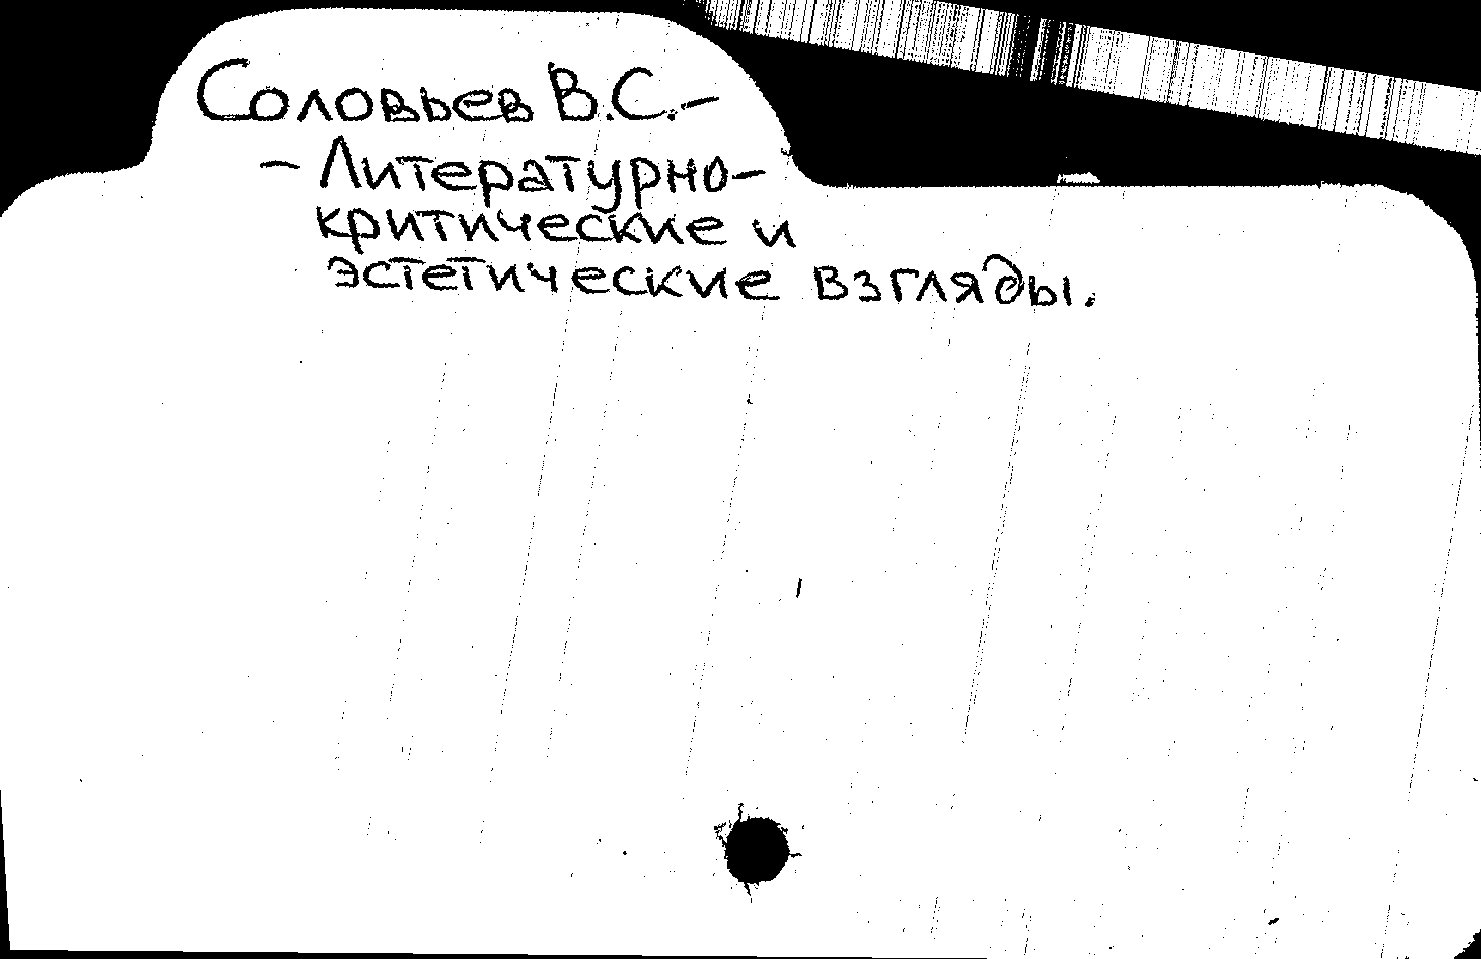 Соловьев В.С.–
– Литературно-
критические и
эстетические взгляды.